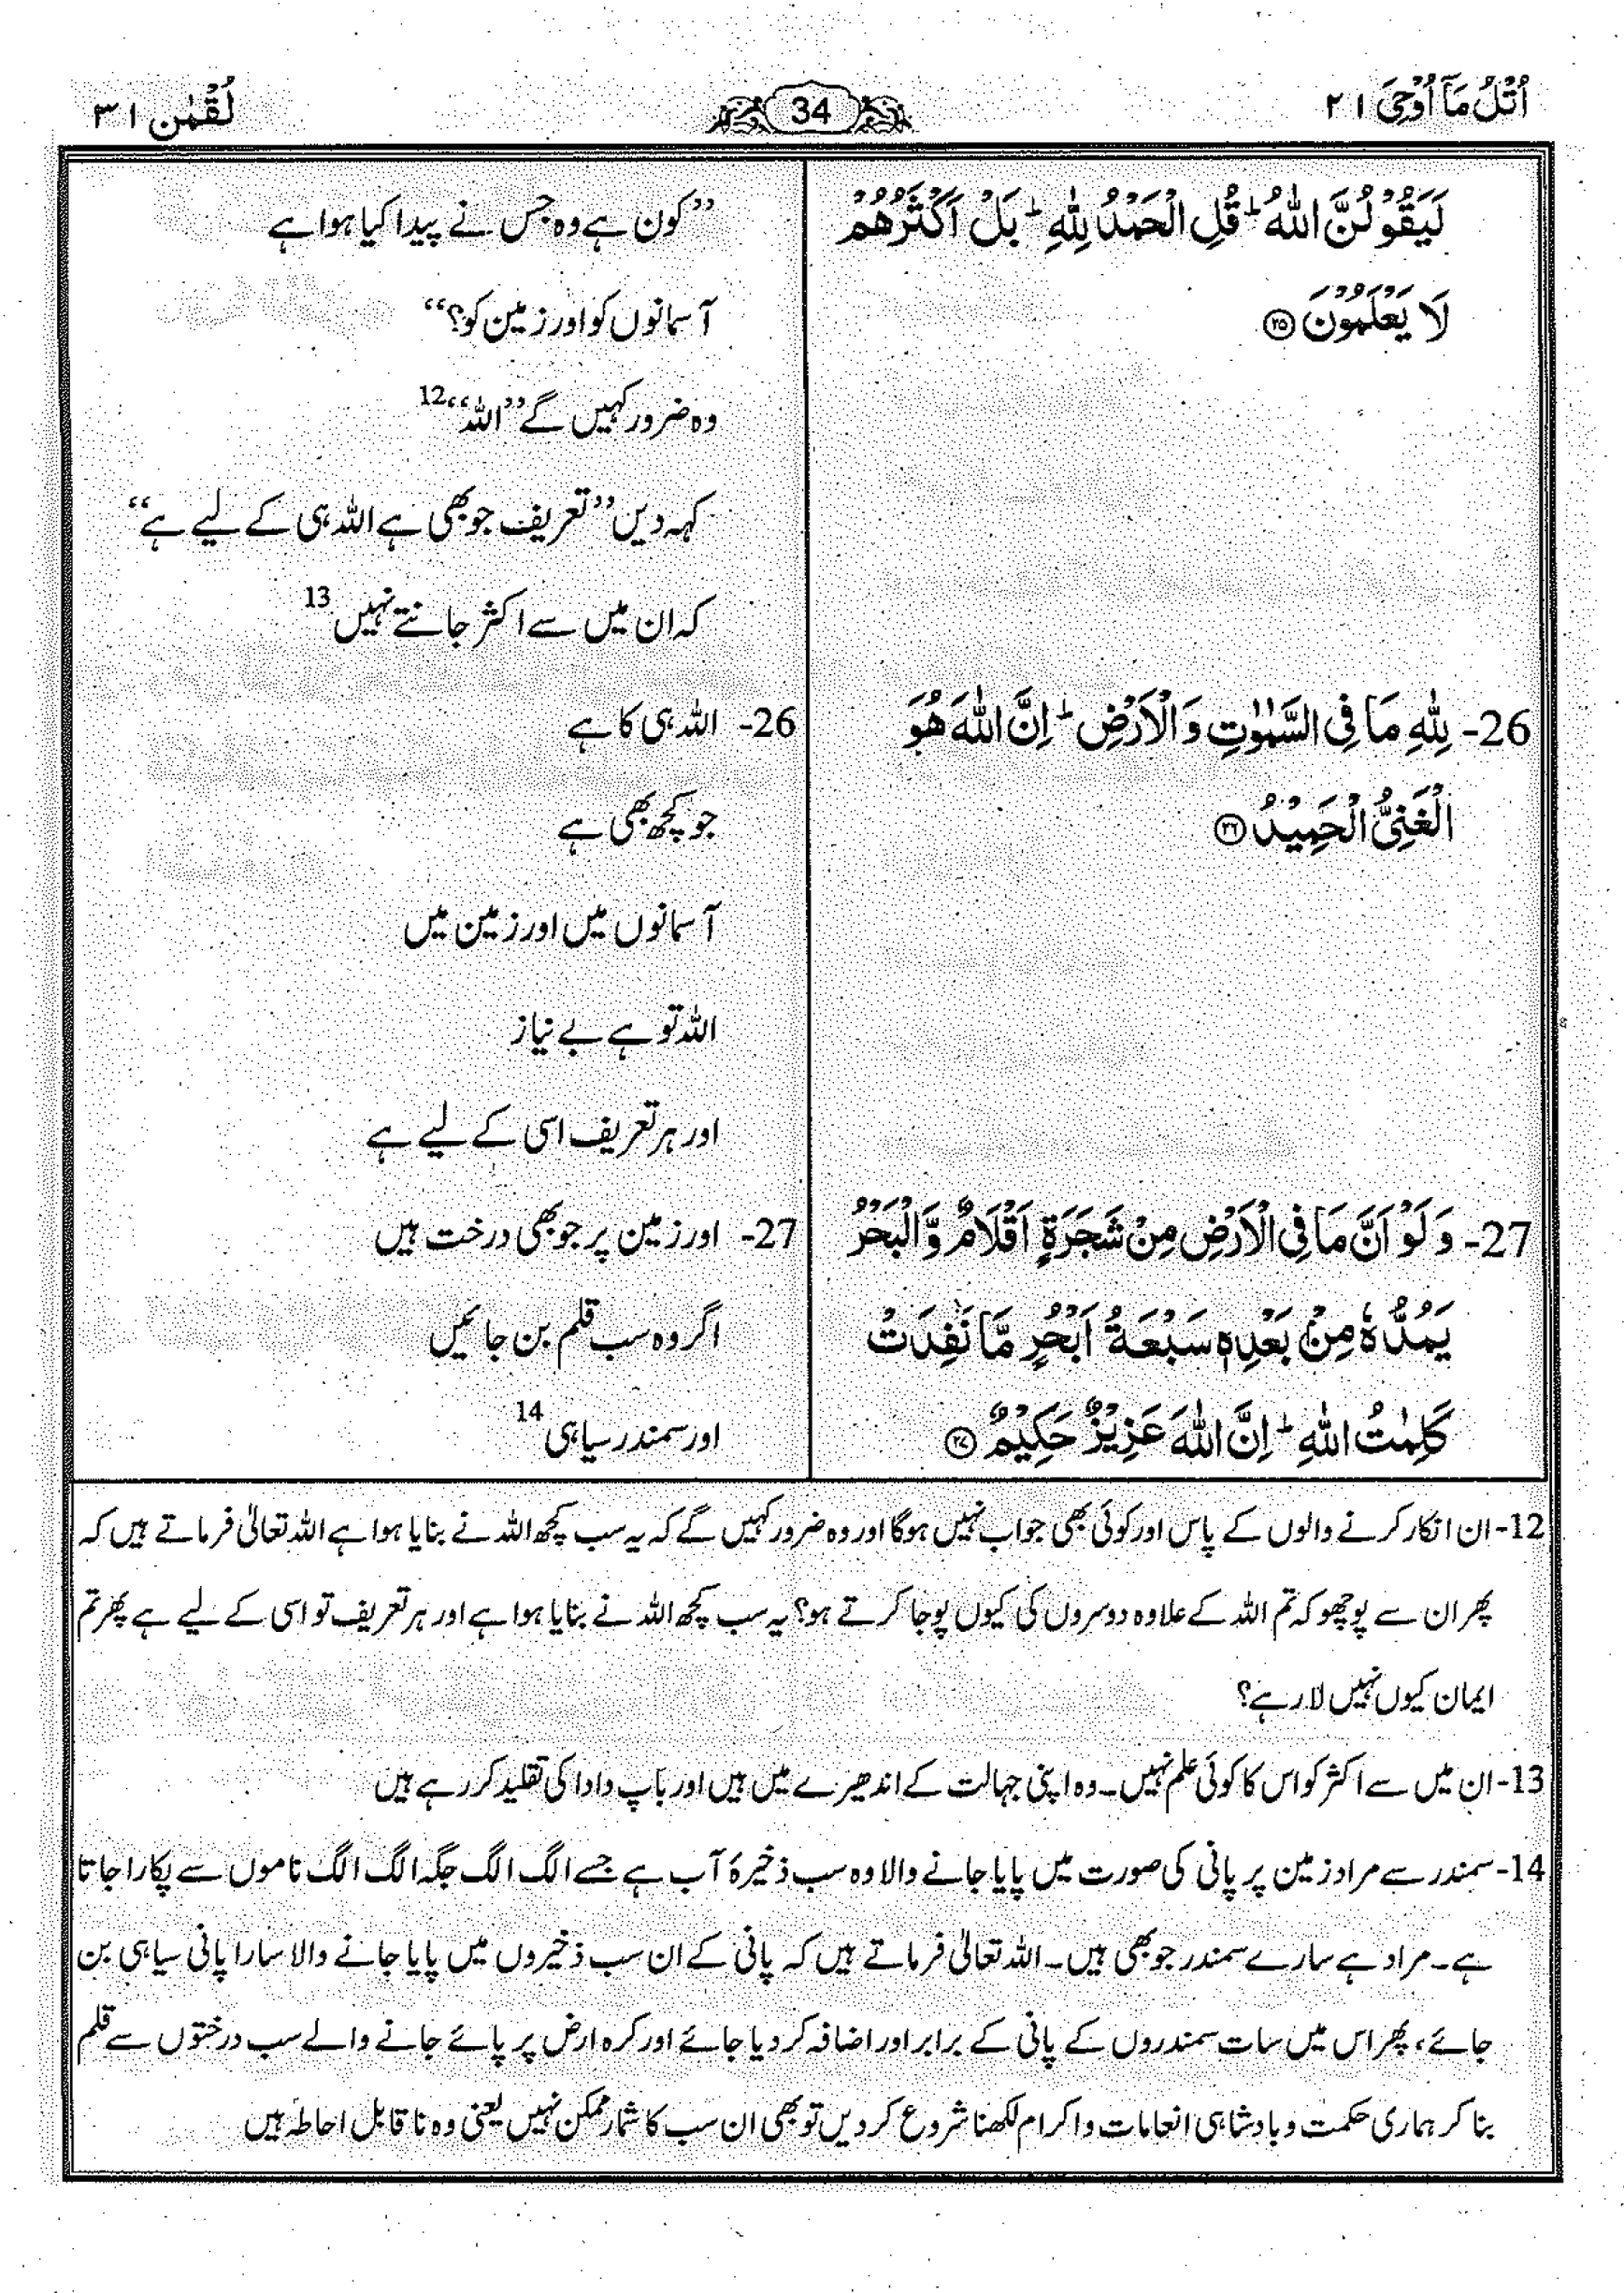 اُتْلُ مَآ اُوْحِیَ ۲۱
34
لُقْمٰن ۳۱
لَیَقُوْلُنَّ اللّٰهُ ؕ قُلِ الْحَمْدُ لِلّٰهِ ؕ بَلْ اَکْثَرُهُمْ
لَا یَعْلَمُوْنَ ﴿۲۵﴾
26- لِلّٰهِ مَا فِی السَّمٰوٰتِ وَ الْاَرْضِ ؕ اِنَّ اللّٰهَ هُوَ
الْغَنِیُّ الْحَمِیْدُ ﴿۲۶﴾
27- وَ لَوْ اَنَّ مَا فِی الْاَرْضِ مِنْ شَجَرَةٍ اَقْلَامٌ وَّ الْبَحْرُ
یَمُدُّهٗ مِنْۢ بَعْدِهٖ سَبْعَةُ اَبْحُرٍ مَّا نَفِدَتْ
کَلِمٰتُ اللّٰهِ ؕ اِنَّ اللّٰهَ عَزِیْزٌ حَکِیْمٌ ﴿۲۷﴾
”کون ہے وہ جس نے پیدا کیا ہوا ہے
آسمانوں کو اور زمین کو؟“
وہ ضرور کہیں گے ”اللہ“ 12
کہہ دیں ”تعریف جو بھی ہے اللہ ہی کے لیے ہے“
کہ ان میں سے اکثر جانتے نہیں 13
26- اللہ ہی کا ہے
جو کچھ بھی ہے
آسمانوں میں اور زمین میں
اللہ تو ہے بے نیاز
اور ہر تعریف اسی کے لیے ہے
27- اور زمین پر جو بھی درخت ہیں
اگر وہ سب قلم بن جائیں
اور سمندر سیاہی 14
12- ان انکار کرنے والوں کے پاس اور کوئی بھی جواب نہیں ہوگا اور وہ ضرور کہیں گے کہ یہ سب کچھ اللہ نے بنایا ہوا ہے اللہ تعالیٰ فرماتے ہیں کہ
پھر ان سے پوچھو کہ تم اللہ کے علاوہ دوسروں کی کیوں پوجا کرتے ہو؟ یہ سب کچھ اللہ نے بنایا ہوا ہے اور ہر تعریف تو اسی کے لیے ہے پھر تم
ایمان کیوں نہیں لا رہے؟
13- ان میں سے اکثر کو اس کا کوئی علم نہیں۔ وہ اپنی جہالت کے اندھیرے میں ہیں اور باپ دادا کی تقلید کر رہے ہیں
14- سمندر سے مراد زمین پر پانی کی صورت میں پایا جانے والا وہ سب ذخیرۂ آب ہے جسے الگ الگ جگہ الگ الگ ناموں سے پکارا جاتا
ہے۔ مراد ہے سارے سمندر جو بھی ہیں۔ اللہ تعالیٰ فرماتے ہیں کہ پانی کے ان سب ذخیروں میں پایا جانے والا سارا پانی سیاہی بن
جائے، پھر اس میں سات سمندروں کے پانی کے برابر اور اضافہ کر دیا جائے اور کرہ ارض پر پائے جانے والے سب درختوں سے قلم
بنا کر ہماری حکمت و بادشاہی انعامات و اکرام لکھنا شروع کر دیں تو بھی ان سب کا شمار ممکن نہیں یعنی وہ ناقابل احاطہ ہیں